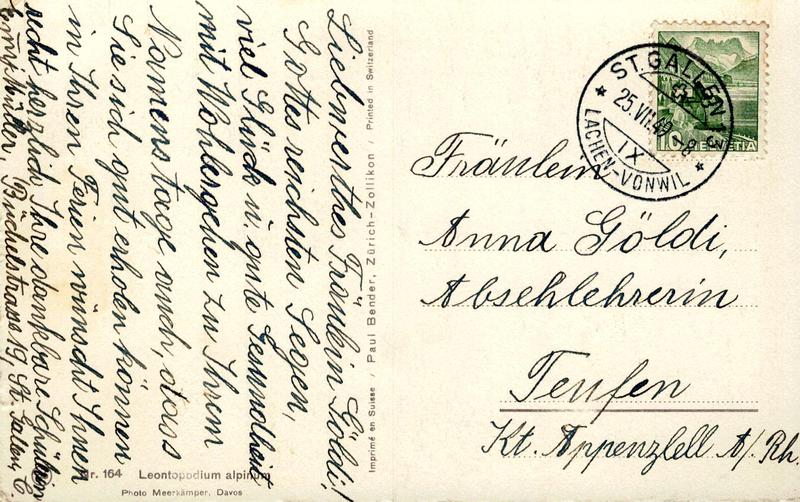 Liebwerthes Fräulein Göldi!
Gottes reichsten Segen,
viel Glück u. gute Gesundheit
mit Wohlergehen zu Ihrem
Namenstage auch, dass
Sie sich gut erholen können
in Ihren Ferien wünscht Ihnen
recht herzlich Ihre dankbare Schülerin
Müller, Büchelstrasse 19, St. Gallen, C
Nr. 164 Leontopodium alpinum
Photo Meerkämper, Davos
Imprimé en Suisse / Paul Bender, Zürich-Zollikon / Printed in Switzerland
ST. GALLEN 13
25.VII.49.-8
IX
LACHEN-VONWIL
10 HELVETIA
Fräulein
Anna Göldi,
Absehlehrerin
Teufen
Kt. Appenzlell A/Rh.